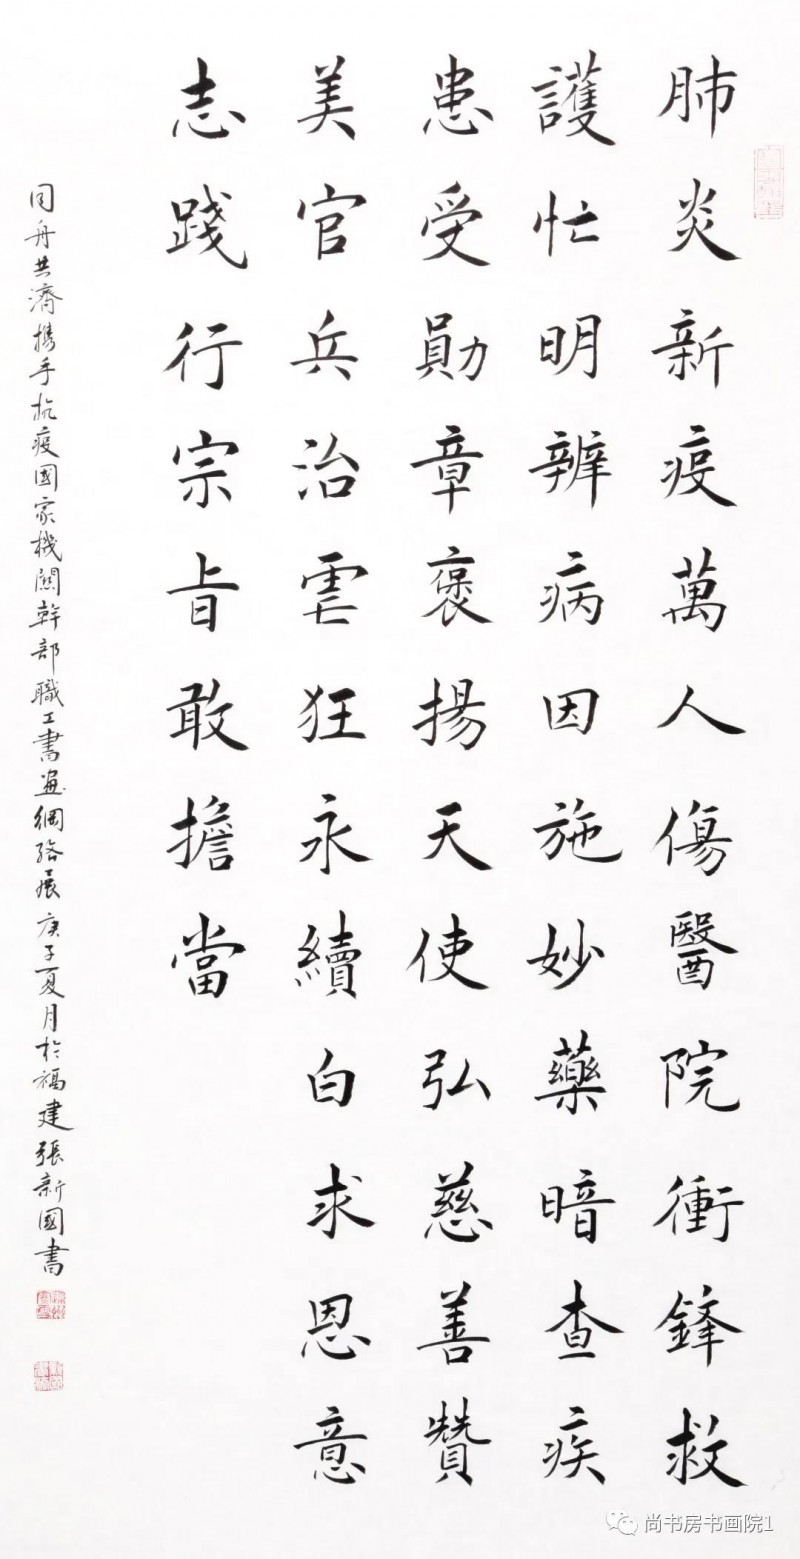 肺炎新疫萬人傷醫院衝鋒救
護忙明辨病因施妙藥暗查疾
患受勛章褒揚天使弘慈善贊
美官兵治虐狂永續白求恩意
志踐行宗旨敢擔當
同舟共濟攜手抗疫國家機關幹部職工書畫網絡展庚子夏月於福建張新國書
尚书房书画院1